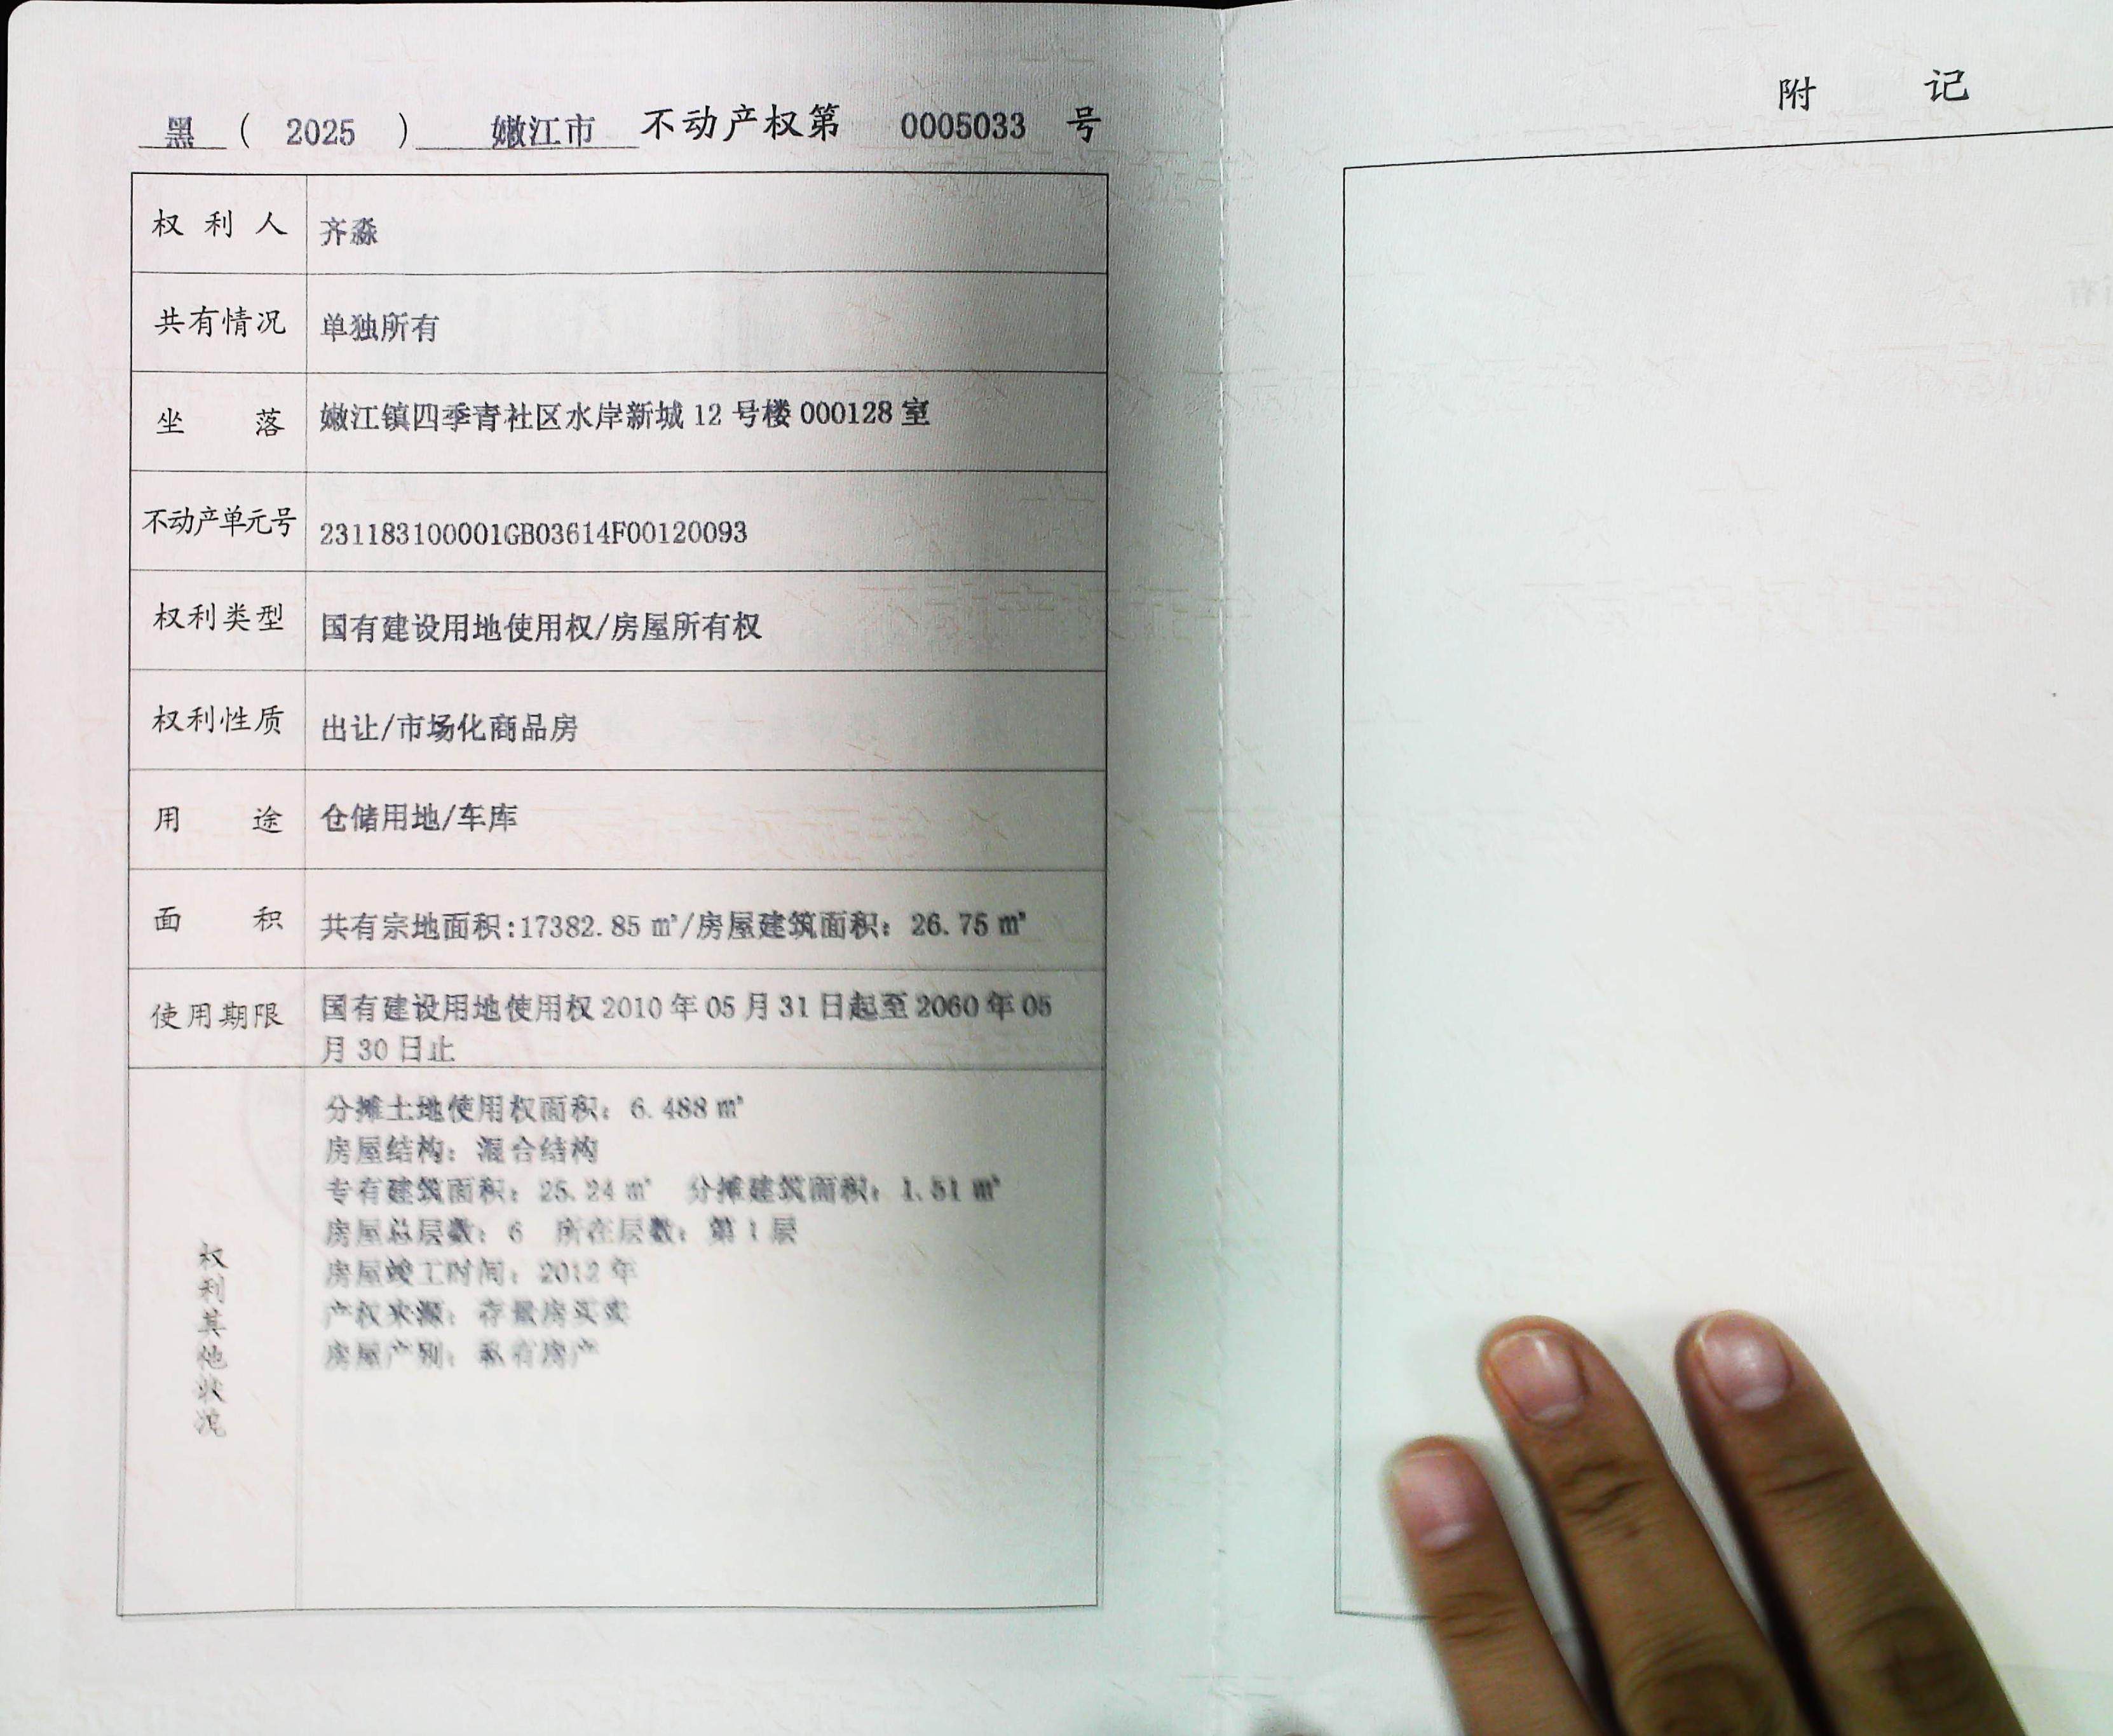 黑 ( 2025 ) 嫩江市 不动产权第 0005033 号
权利人 齐淼
共有情况 单独所有
坐落 嫩江镇四季青社区水岸新城 12 号楼 000128 室
不动产单元号 231183100001GB03614F00120093
权利类型 国有建设用地使用权/房屋所有权
权利性质 出让/市场化商品房
用途 仓储用地/车库
面积 共有宗地面积:17382.85 ㎡/房屋建筑面积: 26.75 ㎡
使用期限 国有建设用地使用权 2010 年 05 月 31 日起至 2060 年 05
月 30 日止
权利其他状况
分摊土地使用权面积: 6.488 ㎡
房屋结构: 混合结构
专有建筑面积: 25.24 ㎡ 分摊建筑面积: 1.51 ㎡
房屋总层数: 6 所在层数: 第 1 层
房屋竣工时间: 2012 年
产权来源: 存量房买卖
房屋产别: 私有房产
附记